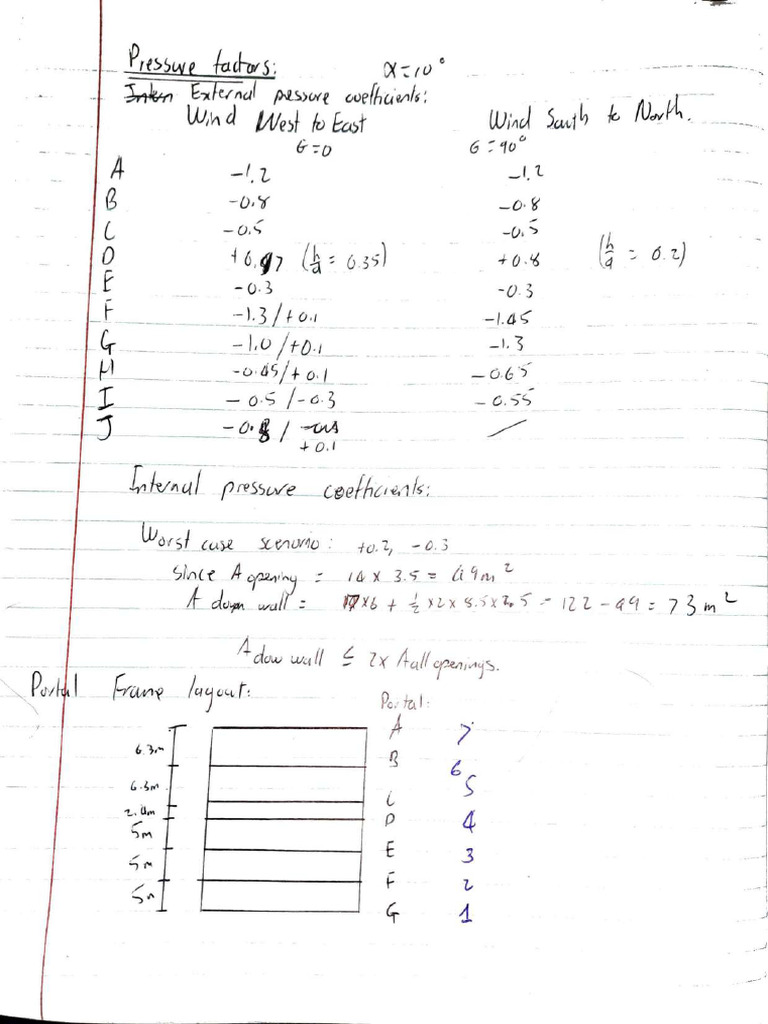 Pressure factors: α=10°
External pressure coefficients:
Wind West to East Wind South to North.
θ=0 θ=90°
A -1.2 -1.2
B -0.8 -0.8
C -0.5 -0.5
D (h/d = 0.35) +0.8 (h/d = 0.2)
E -0.3 -0.3
F -1.3/+0.1 -1.45
G -1.0/+0.1 -1.3
H -0.45/+0.1 -0.65
I -0.5/-0.3 -0.55
J / +0.1
Internal pressure coefficients:
Worst case scenario: +0.2, -0.3
since A opening = 14 x 3.5 = 49m²
A down wall = 17x6 + ½x2x8.5x2.5 = 122 - 49 = 73m²
A dow wall ≤ 2x A all openings.
Portal Frame layout: Portal:
A 7
6.3m
B 6
6.3m
C 5
2.4m
D 4
5m
E 3
5m
F 2
5m
G 1